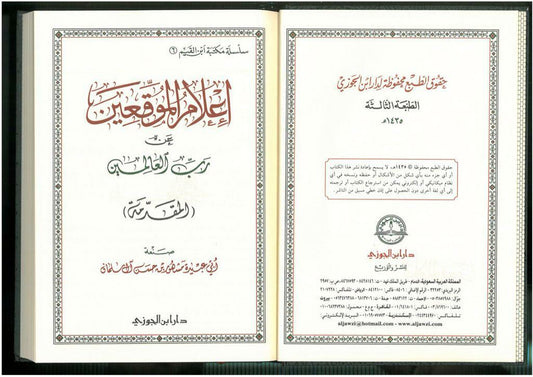 حقوق الطبع محفوظة لدار ابن الجوزي
الطبعة الثالثة
١٤٣٥هـ
حقوق الطبع محفوظة © ١٤٣٥هـ، لا يسمح بإعادة نشر هذا الكتاب
أو أي جزء منه بأي شكل من الأشكال أو حفظه ونسخه في أي
نظام ميكانيكي أو إلكتروني يمكن من استرجاع الكتاب أو ترجمته
إلى أي لغة أخرى دون الحصول على إذن خطي مسبق من الناشر.
دار ابن الجوزي
للنشر والتوزيع
المملكة العربية السعودية: الدمام - طريق الملك فهد - ت:
aljawzi@hotmail.com - www.aljawzi.com
سلسلة مكتبة ابن القيم (٦)
إعلام الموقعين
عن
رب العالمين
(المقدمة)
صنعة
أبي عبيدة مشهور بن حسن آل سلمان
دار ابن الجوزي